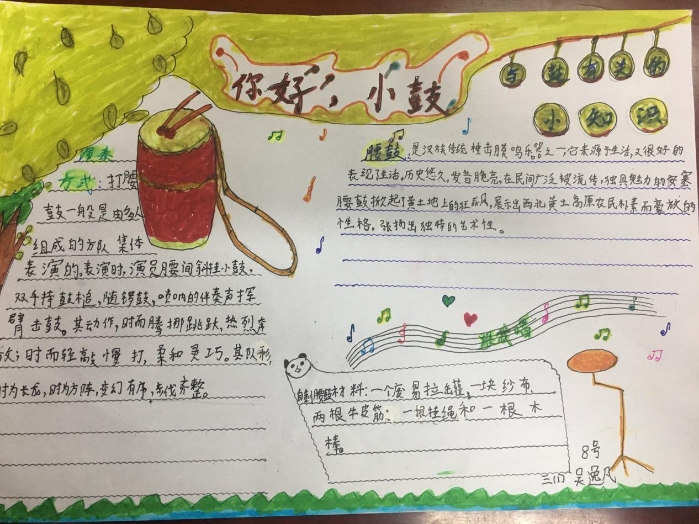 你好，小鼓
与鼓有关的
小知识
演奏
方式：打腰
鼓一般是由多人
组成的方队 集体
表演的，表演时，演员腰间斜挂小鼓，
双手持鼓槌，随锣鼓，唢呐的伴奏声挥
臂击鼓。其动作，时而腾挪跳跃，热烈奔
放；时而轻敲慢打，柔和灵巧。其队形
时为长龙，时为方阵，变幻有序，步伐齐整。
腰鼓：是汉族传统捶击膜鸣乐器之一，它来源于生活，又很好的
表现了生活，历史悠久，发音脆亮，在民间广泛被流传，独具魅力的安塞
腰鼓掀起了黄土地上的狂风，展示出西北黄土高原农民朴素而豪放的
性格，张扬出独特的艺术性。
材料：一个废易拉罐，一块纱布
两根牛皮筋；一根挂绳和一根木
棒。
8号